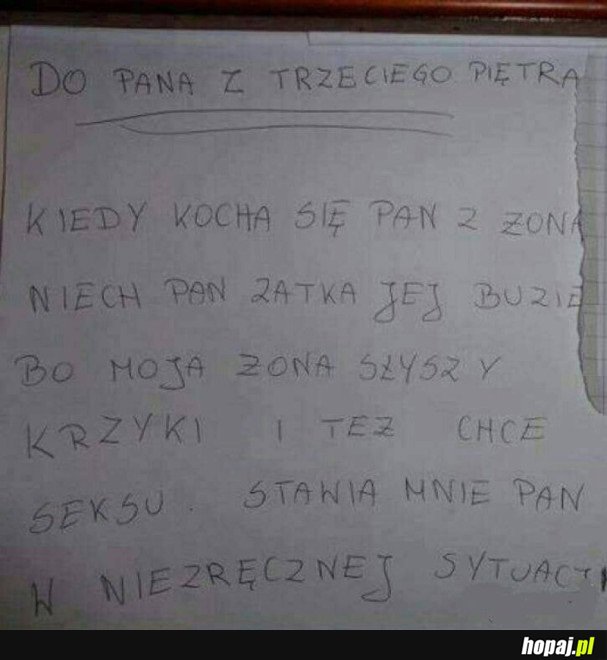 DO PANA Z TRZECIEGO PIĘTRA
KIEDY KOCHA SIĘ PAN Z ŻONA
NIECH PAN ZATKA JEJ BUZIE
BO MOJA ŻONA SŁYSZY
KRZYKI I TEŻ CHCE
SEKSU. STAWIA MNIE PAN
W NIEZRĘCZNEJ SYTUACJI
hopaj.pl